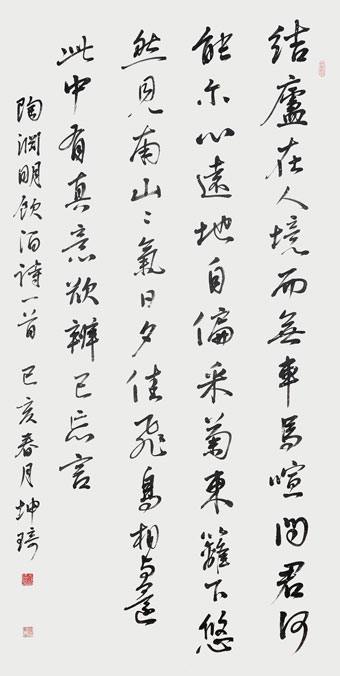 結廬在人境而無車馬喧問君何
能尔心遠地自偏采菊東籬下悠
然見南山〻氣日夕佳飛鳥相与還
此中有真意欲辨已忘言
陶渊明飲酒詩一首 己亥春月坤琦